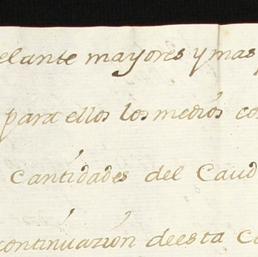 elante mayores y mas
para ellos los medios co
cantidades del Caud
continuazión deesta C